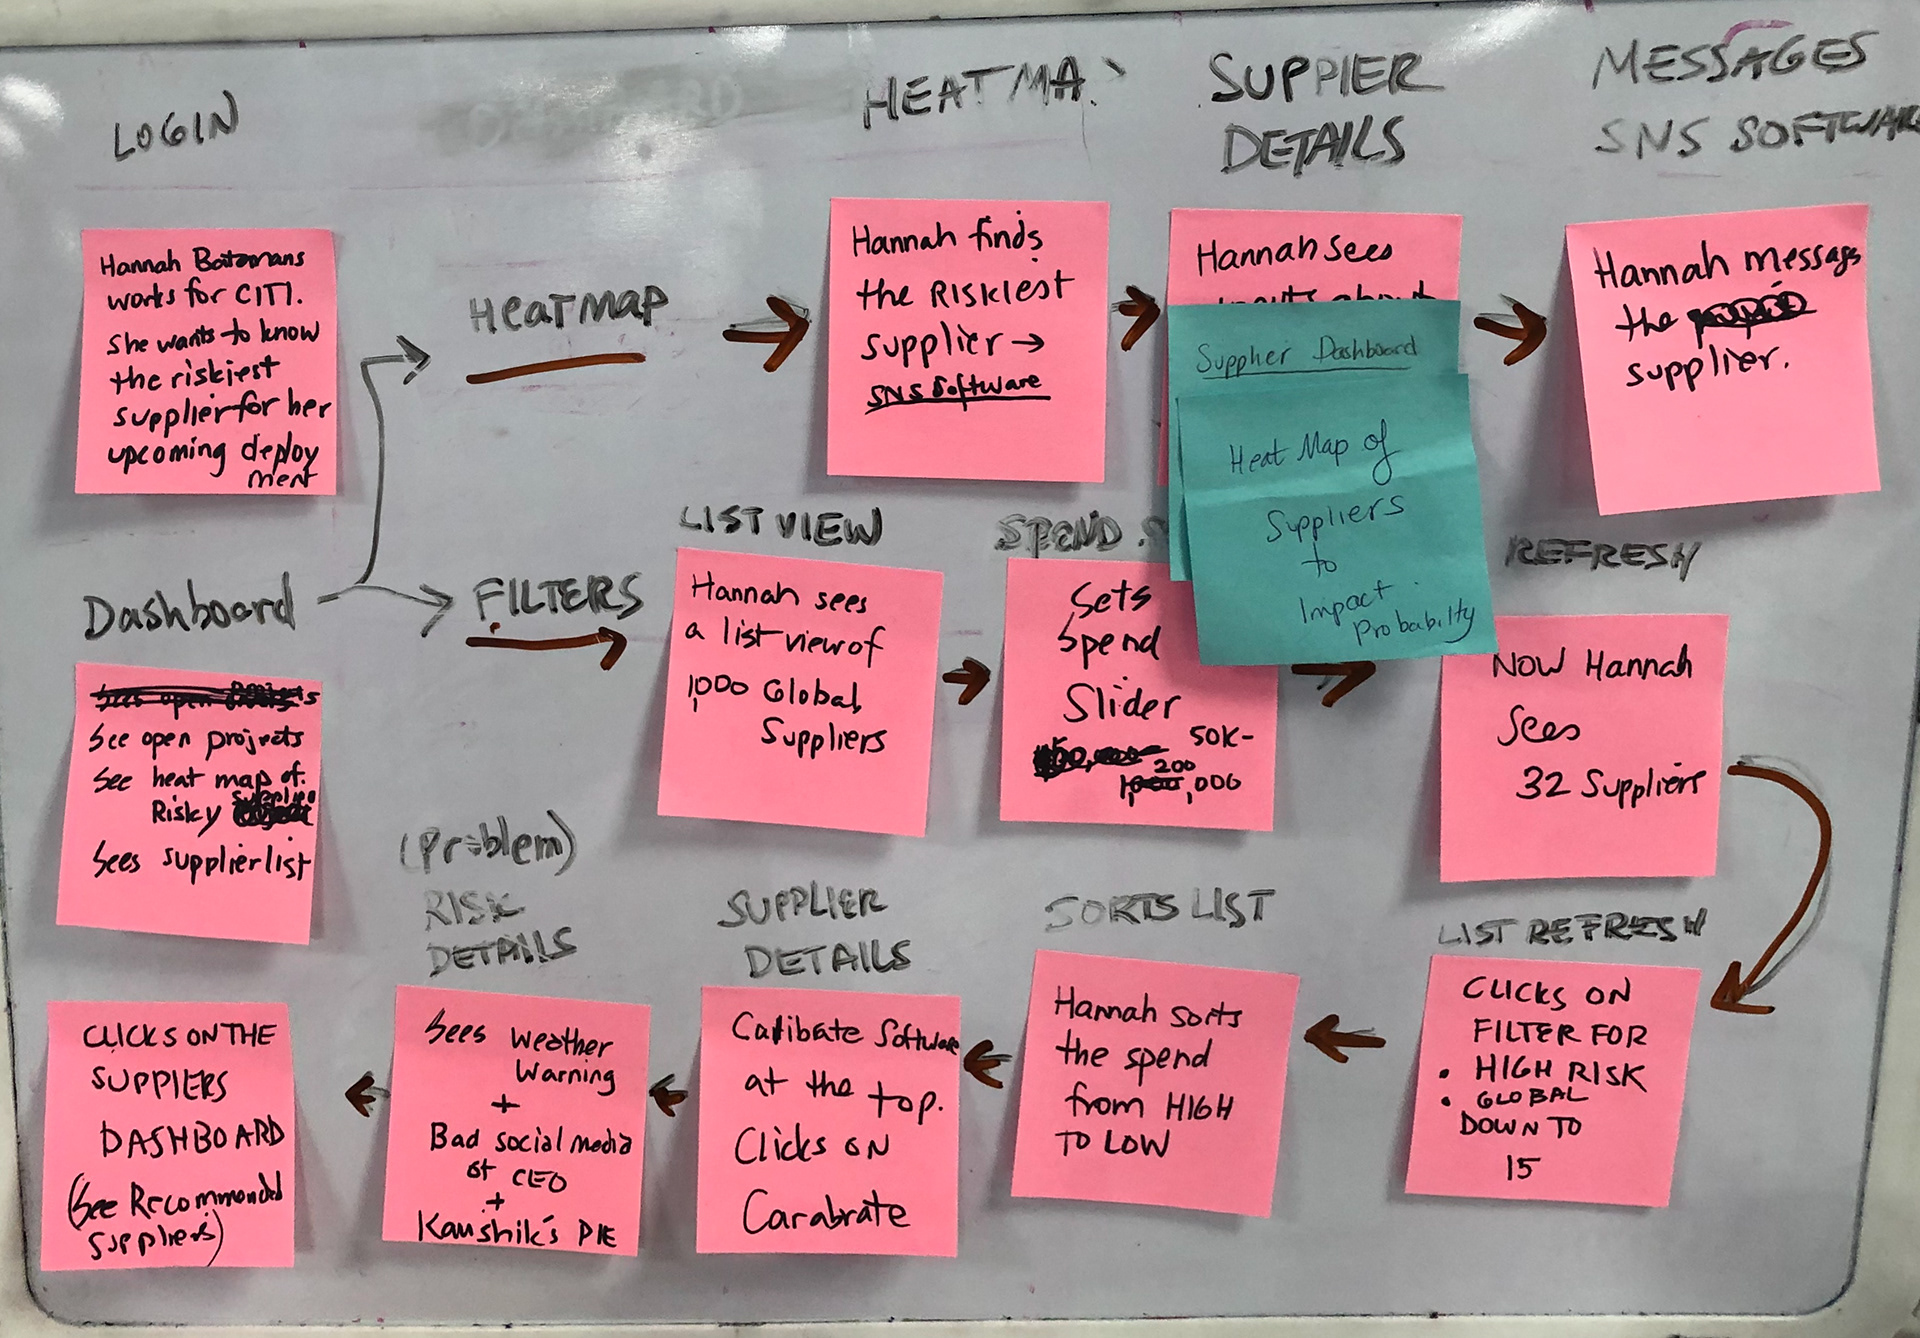 LOGIN
HEATMA
SUPPIER
DETAILS
MESSAGES
SNS SOFTWAR
Hannah
works for CITI.
She wants to know
the riskiest
supplier for her
upcoming deploy
ment
HEATMAP
Hannah finds
the RISKIEST
supplier →
SNS Software
Hannah sees
about
Supplier Dashboard
Heat Map of
Suppliers
to
Impact
Probability
Hannah messags
the
supplier.
Dashboard
FILTERS
LIST VIEW
Hannah sees
a list view of
1,000 Global
Suppliers
SPEND
Sets
Spend
Slider
50K-
200
,000
REFRESH
NOW Hannah
Sees
32 Suppliers
See open projects
See heat map of
Risky
Sees supplier list
(Problem)
RISK
DETAILS
SUPPLIER
DETAILS
SORTS LIST
LIST REFRESH
CLICKS ON THE
SUPPIERS
DASHBOARD
(See Recommended
Suppliers)
Sees Weather
Warning
+
Bad social media
of CEO
+
Kaushik's PIE
Software
at the top.
Clicks on
Carabrate
Hannah sorts
the spend
from HIGH
TO LOW
CLICKS ON
FILTER FOR
• HIGH RISK
• GLOBAL
DOWN TO
15